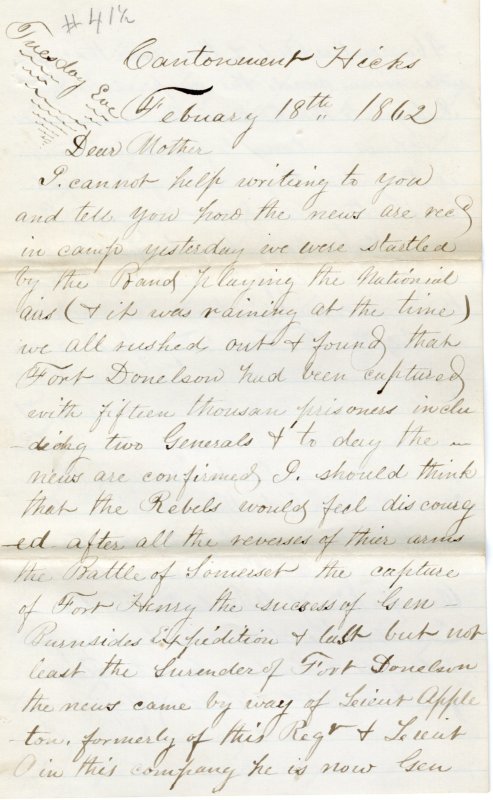 # 41½
Tuesday Eve
Cantonment Hicks
Febuary 18th 1862
Dear Mother
I cannot help writing to you
and tell you how the news are recd
in camp yesterday we were startled
by the Band playing the National
airs (& it was raining at the time)
we all rushed out & found that
Fort Donelson had been captured
with fifteen thousan prisoners inclu
-ding two Generals & to day the
news are confirmed I should think
that the Rebels would feel discourg
-ed after all the reverses of thier arms
the Battle of Somerset the capture
of Fort Henry the sucess of Gen
Burnsides Expidition & last but not
least the Surender of Fort Donelson
the news came by way of Leieut Apple
ton. formerly of this Regt & Leieut
in this company he is now Gen